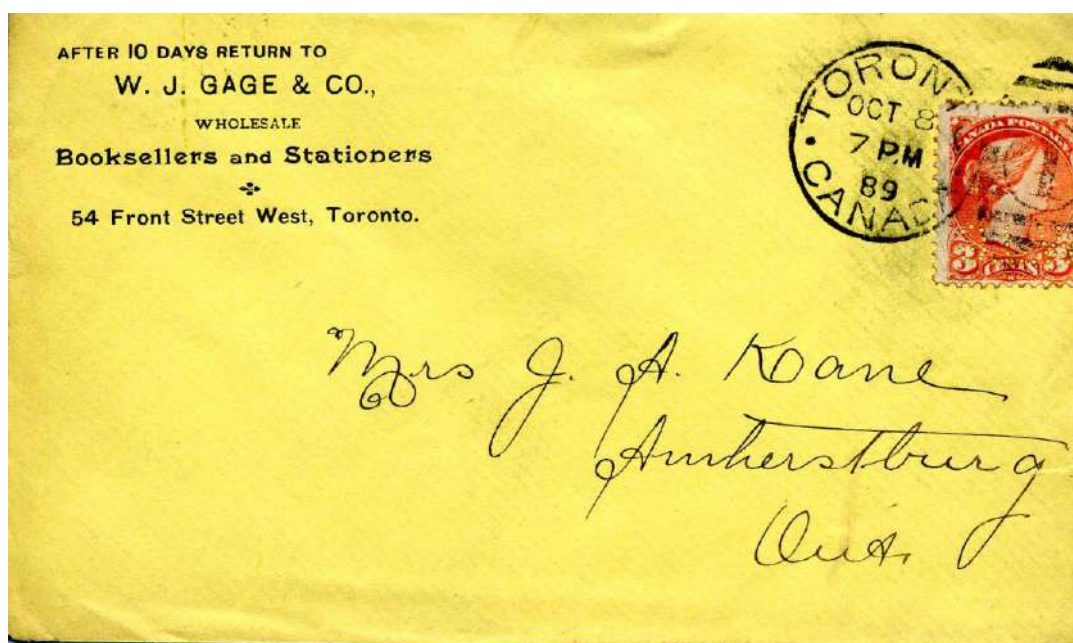 AFTER 10 DAYS RETURN TO
W. J. GAGE & CO.,
WHOLESALE
Booksellers and Stationers
54 Front Street West, Toronto.
TORON
OCT 8
7 PM
89
CANAD
CANADA POSTAGE
3 CENTS 3
Mrs J. A. Kane
Amherstburg
Ont.